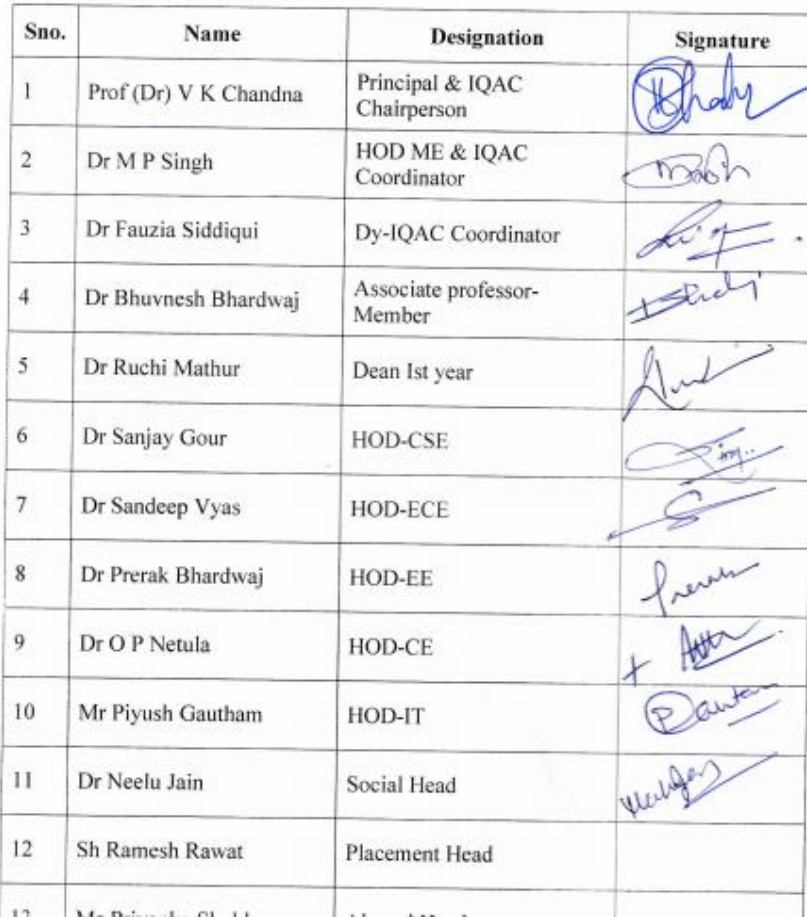 Sno. Name Designation Signature
1 Prof (Dr) V K Chandna Principal & IQAC
Chairperson
2 Dr M P Singh HOD ME & IQAC
Coordinator
3 Dr Fauzia Siddiqui Dy-IQAC Coordinator
4 Dr Bhuvnesh Bhardwaj Associate professor-
Member
5 Dr Ruchi Mathur Dean Ist year
6 Dr Sanjay Gour HOD-CSE
7 Dr Sandeep Vyas HOD-ECE
8 Dr Prerak Bhardwaj HOD-EE Prerak
9 Dr O P Netula HOD-CE
10 Mr Piyush Gautham HOD-IT
11 Dr Neelu Jain Social Head
12 Sh Ramesh Rawat Placement Head